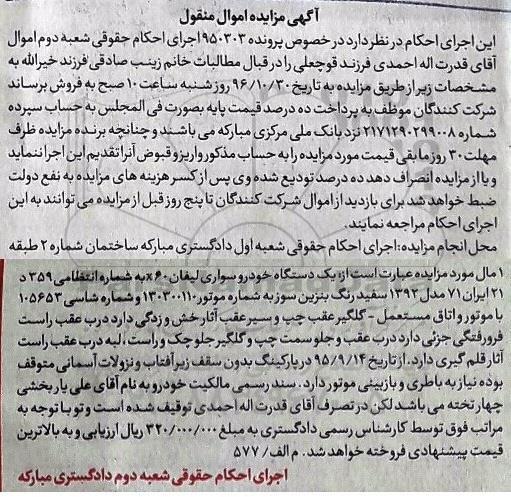 آگهی مزایده اموال منقول
این اجرای احکام در نظر دارد در خصوص پرونده ۹۵۰۳۰۳ اجرای احکام حقوقی شعبه دوم اموال
آقای قدرت اله احمدی فرزند قوچعلی را در قبال مطالبات خانم زینب صادقی فرزند خیرالله به
مشخصات زیر از طریق مزایده به تاریخ ۹۶/۱۰/۳۰ روز شنبه ساعت ۱۰ صبح به فروش برساند
شرکت کنندگان موظف به پرداخت ده درصد قیمت پایه بصورت فی المجلس به حساب سپرده
شماره ۲۱۷۱۲۹۰۲۹۹۰۰۸ نزد بانک ملی مرکزی مبارکه می باشند و چنانچه برنده مزایده ظرف
مهلت ۳۰ روز مابقی قیمت مورد مزایده را به حساب مذکور واریز و قبوض آنرا تقدیم این اجرا ننماید
و یا از مزایده انصراف دهد ده درصد تودیع شده وی پس از کسر هزینه های مزایده به نفع دولت
ضبط خواهد شد برای بازدید از اموال شرکت کنندگان تا پنج روز قبل از مزایده می توانند به این
اجرای احکام مراجعه نمایند.
محل انجام مزایده: اجرای احکام حقوقی شعبه اول دادگستری مبارکه ساختمان شماره ۲ طبقه
۱ مال مورد مزایده عبارت است از: یک دستگاه خودرو سواری لیفان x۶۰ به شماره انتظامی ۳۵۹ د
۲۱ ایران ۷۱ مدل ۱۳۹۲ سفید رنگ بنزین سوز به شماره موتور ۱۳۰۳۰۰۱۱۰ و شماره شاسی ۱۰۵۶۵۳
با موتور و اتاق مستعمل - گلگیر عقب چپ و سپر عقب آثار خش و زدگی دارد درب عقب راست
فرورفتگی جزئی دارد درب عقب و جلو سمت چپ و گلگیر جلو چک و راست، لبه درب عقب راست
آثار قلم گیری دارد. از تاریخ ۹۵/۹/۱۴ در پارکینگ بدون سقف زیر آفتاب و نزولات آسمانی متوقف
بوده نیاز به باطری و بازبینی موتور دارد. سند رسمی مالکیت خودرو به نام آقای علی یار بخشی
چهار تخته می باشد لکن در تصرف آقای قدرت اله احمدی توقیف شده است و تو با توجه به
مراتب فوق توسط کارشناس رسمی دادگستری به مبلغ ۳۲۰/۰۰۰/۰۰۰ ریال ارزیابی و به بالاترین
قیمت پیشنهادی فروخته خواهد شد. م الف/ ۵۷۷
اجرای احکام حقوقی شعبه دوم دادگستری مبارکه